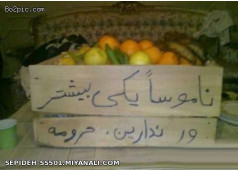 8o2pic.com
ناموساً یکی بیشتر
ور ندارین. حرومه
SEPIDEH-55501.MIYANALI.COM